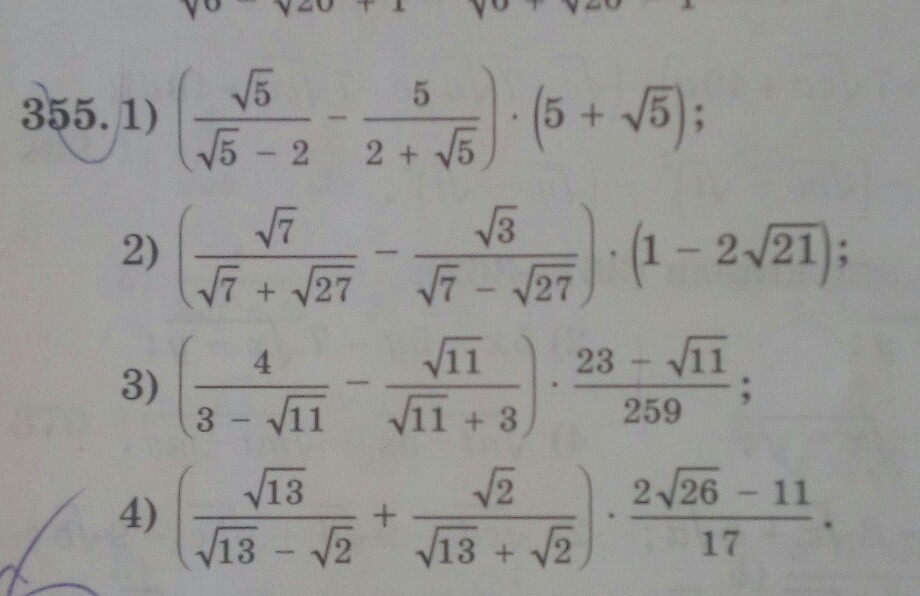 √6 − √20 + 1 √6 + √20 − 1
355. 1) (√5/(√5 − 2) − 5/(2 + √5)) · (5 + √5);
2) (√7/(√7 + √27) − √3/(√7 − √27)) · (1 − 2√21);
3) (4/(3 − √11) − √11/(√11 + 3)) · (23 − √11)/259;
4) (√13/(√13 − √2) + √2/(√13 + √2)) · (2√26 − 11)/17.